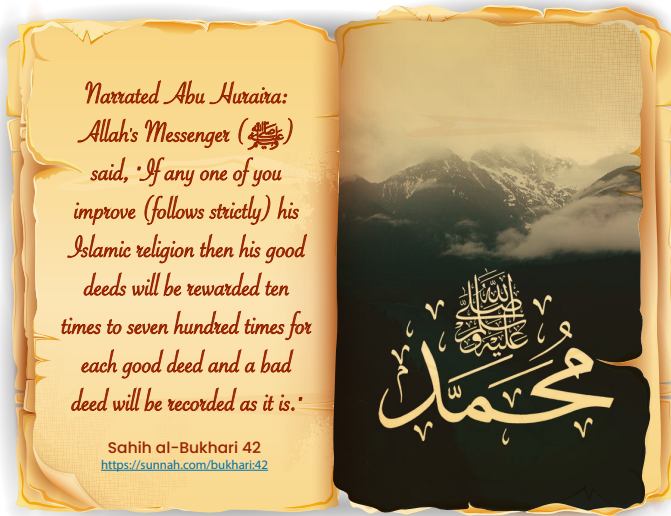 Narrated Abu Huraira:
Allah's Messenger (ﷺ)
said, "If any one of you
improve (follows strictly) his
Islamic religion then his good
deeds will be rewarded ten
times to seven hundred times for
each good deed and a bad
deed will be recorded as it is."
Sahih al-Bukhari 42
https://sunnah.com/bukhari:42
صلى الله عليه وسلم
محمد